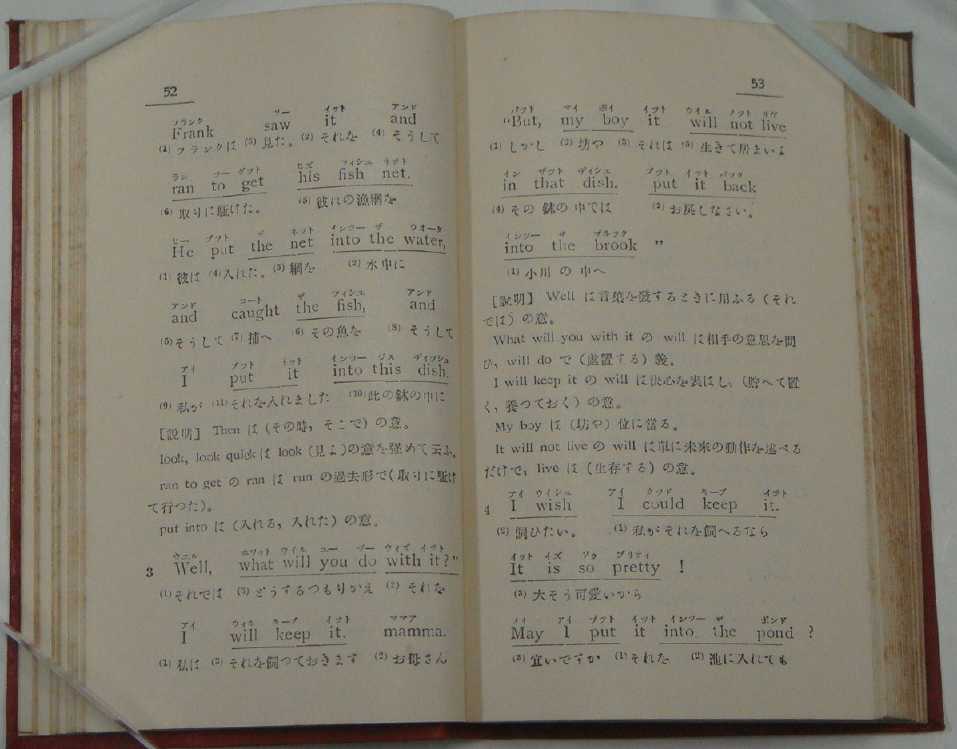 52
フランク ソー イット アンド
Frank saw it and
(1) フランクは (3) 見た。 (2) それを (4) そうして
ラン ツー ゲット ヒズ フィシュ ネット
ran to get his fish net.
(6) 取りに駈けた。 (5) 彼れの漁網を
ヒー プット ザ ネット インツー ザ ウオータ
He put the net into the water,
(1) 彼は (4) 入れた。 (3) 網を (2) 水中に
アンド コート ザ フィシュ アンド
and caught the fish, and
(5) そうして (7) 捕へ (6) その魚を (8) そうして
アイ プット イット インツー ジス ディッシュ
I put it into this dish.
(9) 私が (11) それを入れました (10) 此の鉢の中に
[説明] Then は (その時, そこで) の意。
look, look quick は look (見よ)の意を强めて云ふ。
ran to get の ran は run の過去形で(取りに駈け
て行つた)。
put into は (入れる, 入れた) の意。
ウエル ホワット ウイル ユー ヅー ウィズ イット
3 Well, what will you do with it?"
(1) それでは (3) どうするつもりかえ (2) それを
アイ ウィル キープ イット ママア
I will keep it. mamma.
(1) 私は (3) それを飼つておきます (2) お母さん
53
バット マイ ボイ イット ウイル ノット リヴ
"But, my boy it will not live
(1) しかし (2) 坊や (3) それは (5) 生きて居まいよ
イン ザット ディシュ プット イット バック
in that dish. put it back
(4) その 鉢の 中では (2) お戾しなさい。
インツー ザ ブルック
into the brook "
(1) 小川 の 中へ
[説明] Well は言葉を發するときに用ふる (それ
では) の意。
What will you with it の will は相手の意思を問
ひ, will do で (處置する) 義。
I will keep it の will は決心を表はし, (貯へて置
く, 養つておく) の意。
My boy は (坊や) 位に當る。
It will not live の will は單に未來の動作を述べる
だけで, live は (生存する) の意。
アイ ウイシュ アイ クッド キープ イット
4 I wish I could keep it.
(2) 飼ひたい。 (1) 私がそれを飼へるなら
イット イズ ソゥ プリティ
It is so pretty !
(3) 大そう可愛いから
メイ アイ プット イット インツー ザ ポンド
May I put it into the pond ?
(3) 宜いですか (1) それを (2) 池に入れても